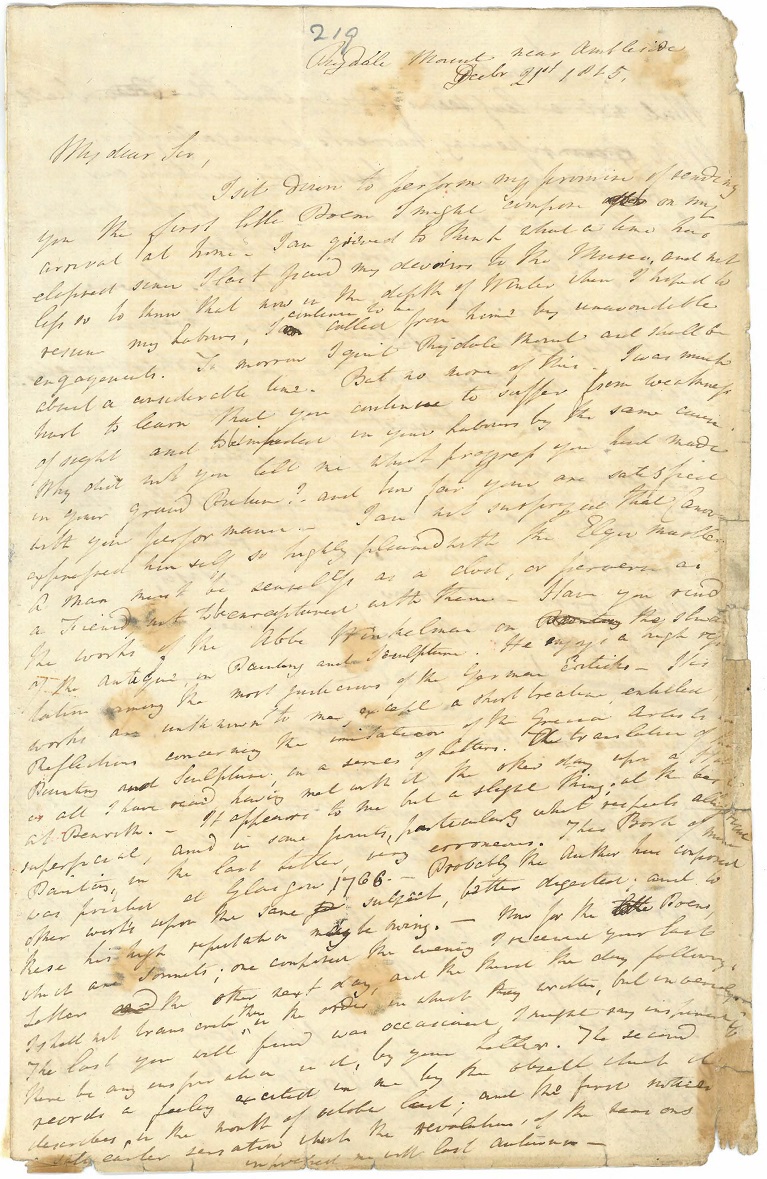 219
Rydale Mount near Ambleside
Decbr 21st 1815.
My dear Sir,
I sit down to perform my promise of sending
you the first little Poem I might compose on my
arrival at home. I am grieved to think what a time has
elapsed since I last paid my devoirs to the Muses, and not
less so to know that now in the depth of Winter when I hoped to
resume my Labours, I continue to be called from home by unavoidable
engagements. To morrow I quit Rydale Mount and shall be
absent a considerable time. But no more of this. I was much
hurt to learn that you continue to suffer from weakness
of sight and to be impeded in your Labours by the same cause.
Why did not you tell me what progress you had made
in your grand Picture? and how far you are satisfied
with your performance. I am not surprized that Canova
expressed himself so highly pleased with the Elgin Marbles
A Man must be senseless as a clod, or perverse as
a Fiend not to be enraptured with them. Have you read
the works of the Abbe Winkelman on the study
of the Antique, in Painting and Sculpture. He enjoys a high
among the most judicious of the German Criticks — His
works are unknown to me, except a short treatise, entitled
Reflections concerning the imitation of the Grecian Artists in
Painting and Sculpture in a series of Letters. A translation of
is all I have read having met with it the other day upon a Stall
at Penrith. — It appears to me but a slight thing; at the best
superficial, and in some points, particularly what respects allegorical
Painting, in the last letter, very erroneous. This Book of mine
was printed at Glasgow 1766. — Probably the Author has composed
other works upon the same subject, better digested; and to
these his high reputation may be owing. — Now for the Poems,
which are Sonnets; one composed the evening I received your last
Letter the other next day, and the third the day following.
I shall not transcribe them in the order in which they written, but inversely.
The last you will find was occasioned, I might say inspired if
there be any inspiration in it, by your Letter. The second
records a feeling excited in me by the object which it
describes in the month of October last; and the first notices
a still earlier sensation which the revolution of the seasons
impressed me with last autumn —